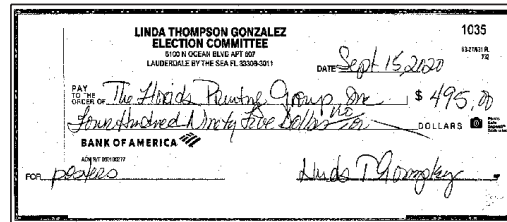 LINDA THOMPSON GONZALEZ
ELECTION COMMITTEE
5100 N OCEAN BLVD APT 907
LAUDERDALE BY THE SEA FL 33308-3011
1035
DATE Sept 15, 2020
PAY TO THE ORDER OF The Florida Printing Group, Inc $ 495.00
Four Hundred Ninety Five Dollars DOLLARS
BANK OF AMERICA
FOR posters